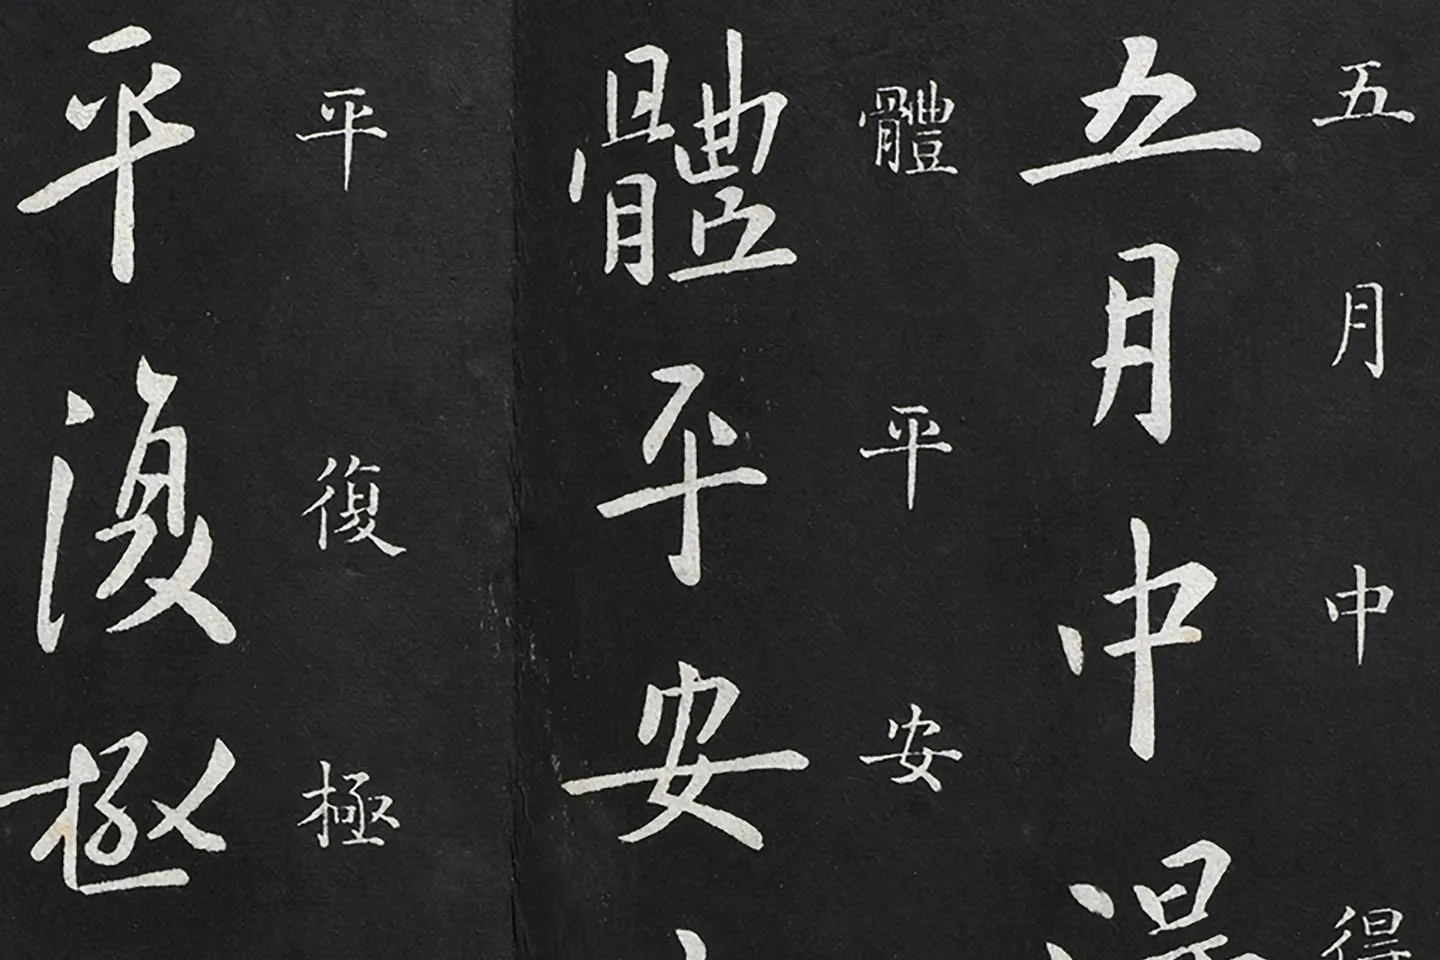 五月中得
五月中得
體平安
體平安
平復極
平復極